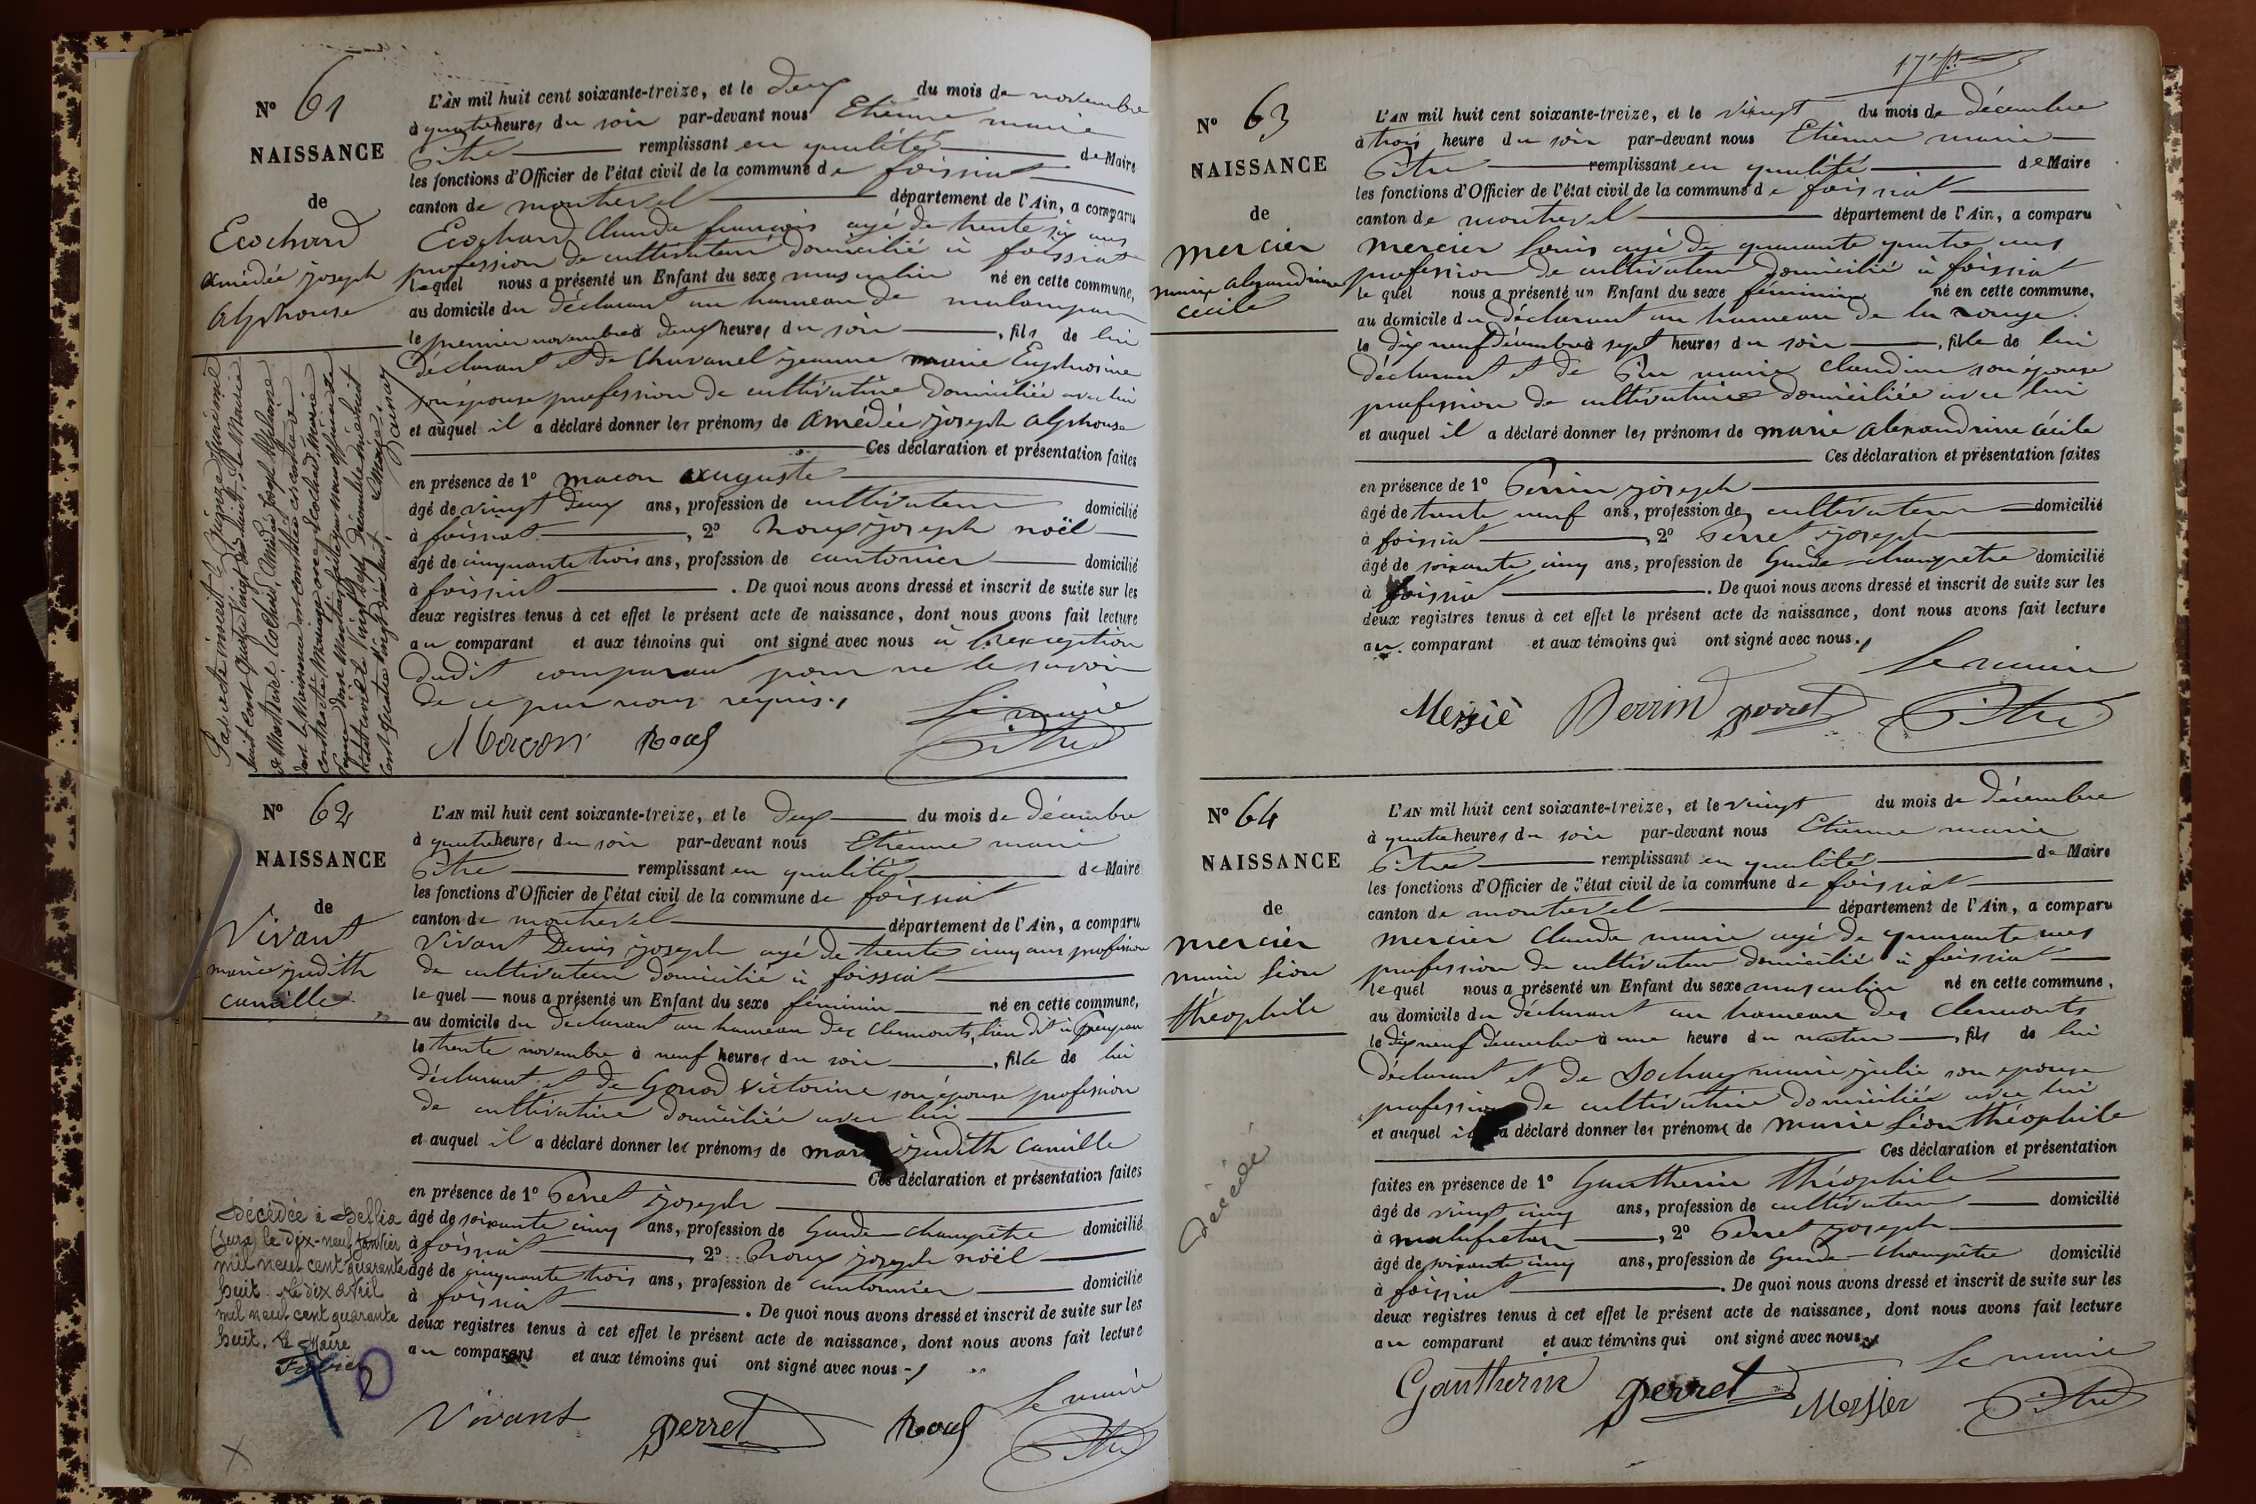 N° 61
NAISSANCE
de
Ecochard
amédée joseph
alphonse
L'AN mil huit cent soixante-treize, et le deux du mois de novembre
à quatre heures du soir par-devant nous Etienne marie
Pitre remplissant en qualité de Maire
les fonctions d'Officier de l'état civil de la commune de foissiat
canton de montrevel département de l'Ain, a comparu
Ecochard Claude françois agé de trente six ans
profession de cultivateur domicilié à foissiat
lequel nous a présenté un Enfant du sexe masculin né en cette commune,
au domicile du déclarant au hameau de
le premier novembre à deux heures du soir, fils de lui
déclarant et de Chavanel jeanne marie Euphrosine
son épouse profession de cultivatrice domiciliée avec lui
et auquel il a déclaré donner les prénoms de amédée joseph alphonse
Ces déclaration et présentation faites
en présence de 1° macon auguste
âgé de vingt deux ans, profession de cultivateur domicilié
à foissiat, 2° joseph noël
âgé de cinquante trois ans, profession de cantonier domicilié
à foissiat. De quoi nous avons dressé et inscrit de suite sur les
deux registres tenus à cet effet le présent acte de naissance, dont nous avons fait lecture
au comparant et aux témoins qui ont signé avec nous à l'exception
dudit comparant pour ne le savoir
de ce par nous requis.
Le maire
Macon Pitre
N° 62
NAISSANCE
de
Vivant
marie judith
camille
L'AN mil huit cent soixante-treize, et le deux du mois de décembre
à quatre heures du soir par-devant nous Etienne marie
Pitre remplissant en qualité de Maire
les fonctions d'Officier de l'état civil de la commune de foissiat
canton de montrevel département de l'Ain, a comparu
Vivant Denis joseph agé de trente cinq ans profession
de cultivateur domicilié à foissiat
lequel nous a présenté un Enfant du sexe féminin né en cette commune,
au domicile du déclarant au hameau des Clermonts, lieu dit à
le trente novembre à neuf heures du soir, fille de lui
déclarant et de Gonod Victorine son épouse profession
de cultivatrice domiciliée avec lui
et auquel il a déclaré donner les prénoms de marie judith camille
Ces déclaration et présentation faites
en présence de 1° Perret joseph
âgé de soixante cinq ans, profession de Garde-champêtre domicilié
à foissiat, 2° joseph noël
âgé de cinquante trois ans, profession de cantonnier domicilié
à foissiat. De quoi nous avons dressé et inscrit de suite sur les
deux registres tenus à cet effet le présent acte de naissance, dont nous avons fait lecture
au comparant et aux témoins qui ont signé avec nous
Le maire
Vivant Perret Pitre
Décédée à Beffia
(Jura) le dix-neuf janvier
mil neuf cent quarante
huit. Le dix avril
mil neuf cent quarante
huit. Le Maire
N° 63
NAISSANCE
de
mercier
marie alexandrine
cécile
L'AN mil huit cent soixante-treize, et le vingt du mois de décembre
à trois heure du soir par-devant nous Etienne marie
Pitre remplissant en qualité de Maire
les fonctions d'Officier de l'état civil de la commune de foissiat
canton de montrevel département de l'Ain, a comparu
mercier Louis agé de quarante quatre ans
profession de cultivateur domicilié à foissiat
lequel nous a présenté un Enfant du sexe féminin né en cette commune,
au domicile du déclarant au hameau de la rouge
le dix neuf décembre à sept heures du soir, fille de lui
déclarant et de marie claudine son épouse
profession de cultivatrice domiciliée avec lui
et auquel il a déclaré donner les prénoms de marie alexandrine cécile
Ces déclaration et présentation faites
en présence de 1° Perrin joseph
âgé de trente neuf ans, profession de cultivateur domicilié
à foissiat, 2° Perret joseph
âgé de soixante cinq ans, profession de Garde-champêtre domicilié
à foissiat. De quoi nous avons dressé et inscrit de suite sur les
deux registres tenus à cet effet le présent acte de naissance, dont nous avons fait lecture
au comparant et aux témoins qui ont signé avec nous.
Le maire
Perrin perret Pitre
N° 64
NAISSANCE
de
mercier
marie léon
théophile
L'AN mil huit cent soixante-treize, et le vingt du mois de décembre
à quatre heures du soir par-devant nous Etienne marie
Pitre remplissant en qualité de Maire
les fonctions d'Officier de l'état civil de la commune de foissiat
canton de montrevel département de l'Ain, a comparu
mercier Claude marie agé de quarante ans
profession de cultivateur domicilié à foissiat
lequel nous a présenté un Enfant du sexe masculin né en cette commune,
au domicile du déclarant au hameau des Clermonts
le dix neuf décembre à une heure du matin, fils de lui
déclarant et de Sochay marie julie son épouse
profession de cultivatrice domiciliée avec lui
et auquel il a déclaré donner les prénoms de marie léon théophile
Ces déclaration et présentation
faites en présence de 1° Gautherin théophile
âgé de vingt cinq ans, profession de cultivateur domicilié
à malafretaz, 2° Perret joseph
âgé de soixante cinq ans, profession de Garde-champêtre domicilié
à foissiat. De quoi nous avons dressé et inscrit de suite sur les
deux registres tenus à cet effet le présent acte de naissance, dont nous avons fait lecture
au comparant et aux témoins qui ont signé avec nous
Le maire
Gautherin perret Mersier Pitre
décédé